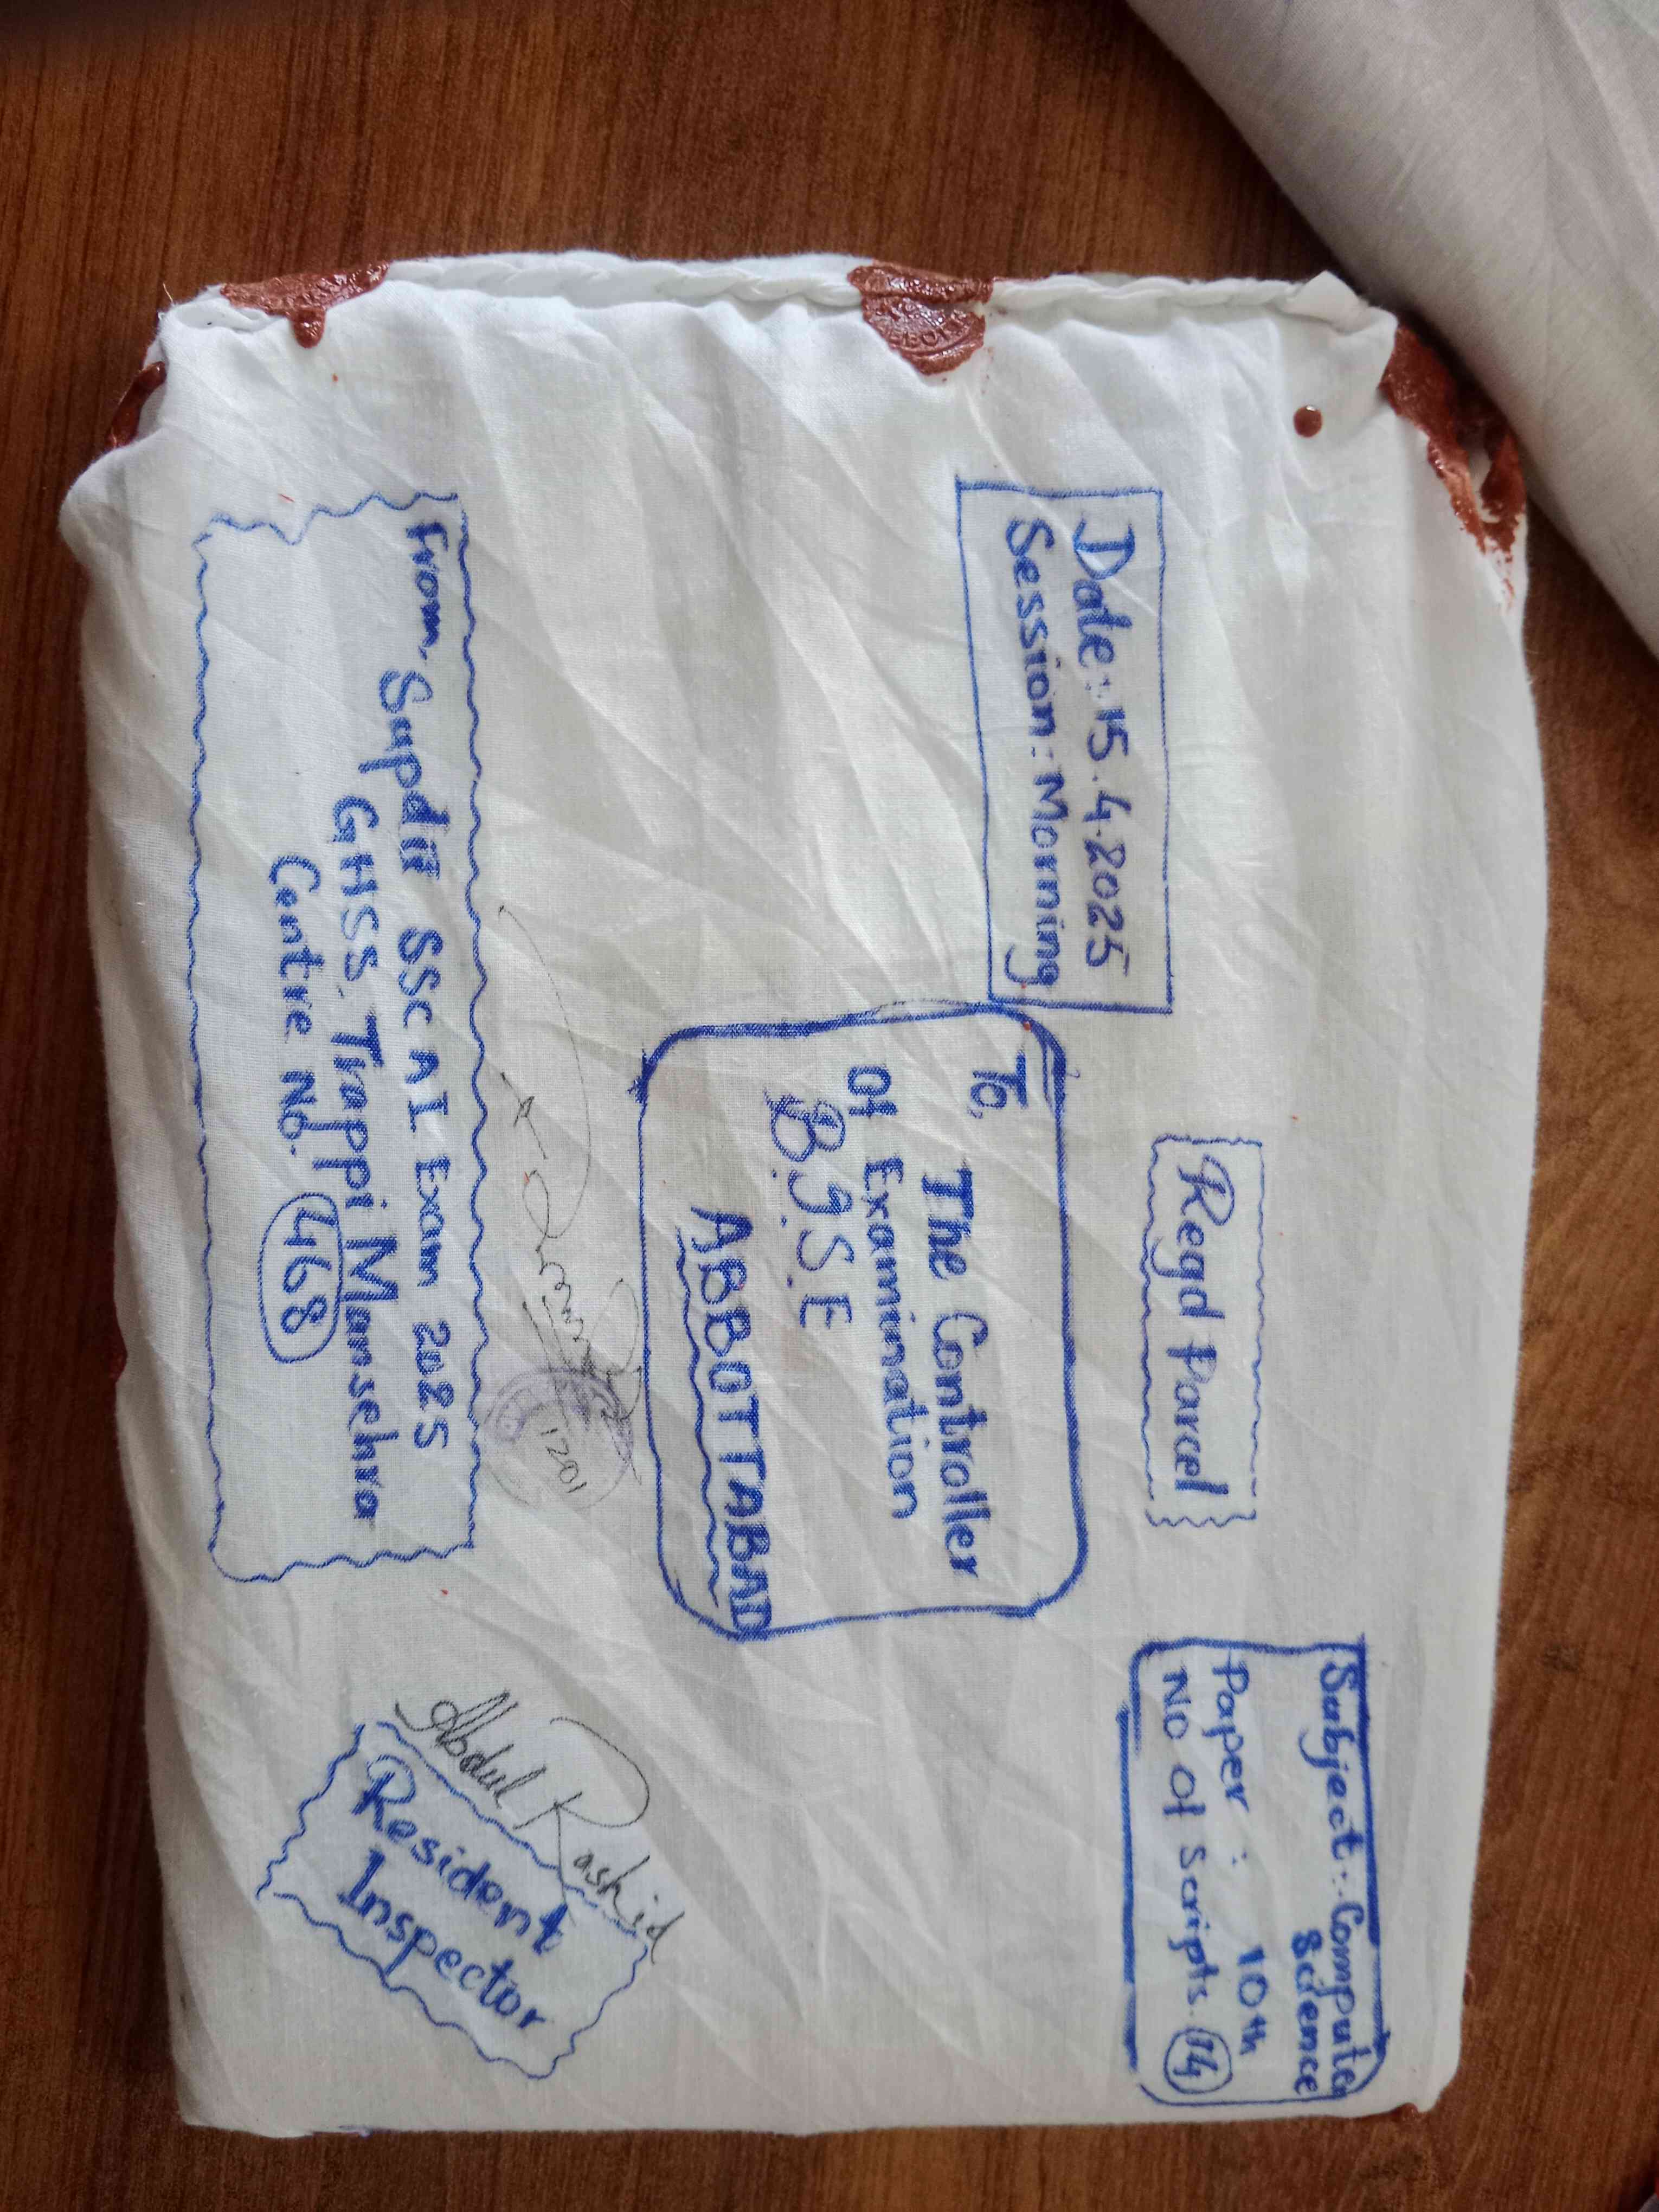 Date:. 15.4.2025
Session: Morning
Regd Parcel
Subject:. Computer
Science
Paper : 10th
No Of Scripts. 14
To,
The Controller
Of Examination
B.I.S.E
ABBOTTABAD
1201
From, Supdtt SSC A I Exam 2025
GHSS Trappi Mansehra
Centre No. 468
Abdul Rashid
Resident
Inspector